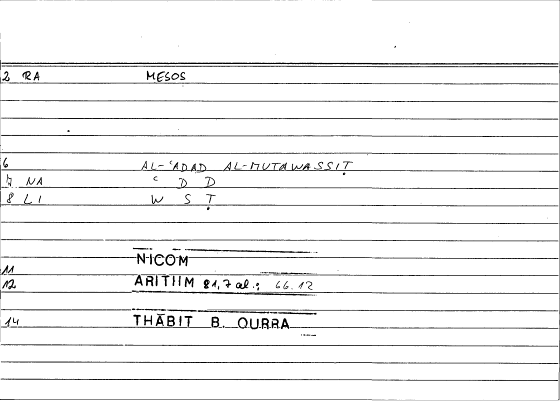 2 RA MESOS
6 AL-ʿADAD AL-MUTAWASSIṬ
7 NA ʿ D D
8 LI W S Ṭ
11 NICOM
12 ARITHM 81,7 al.; 66.12
14 THĀBIT B. QURRA